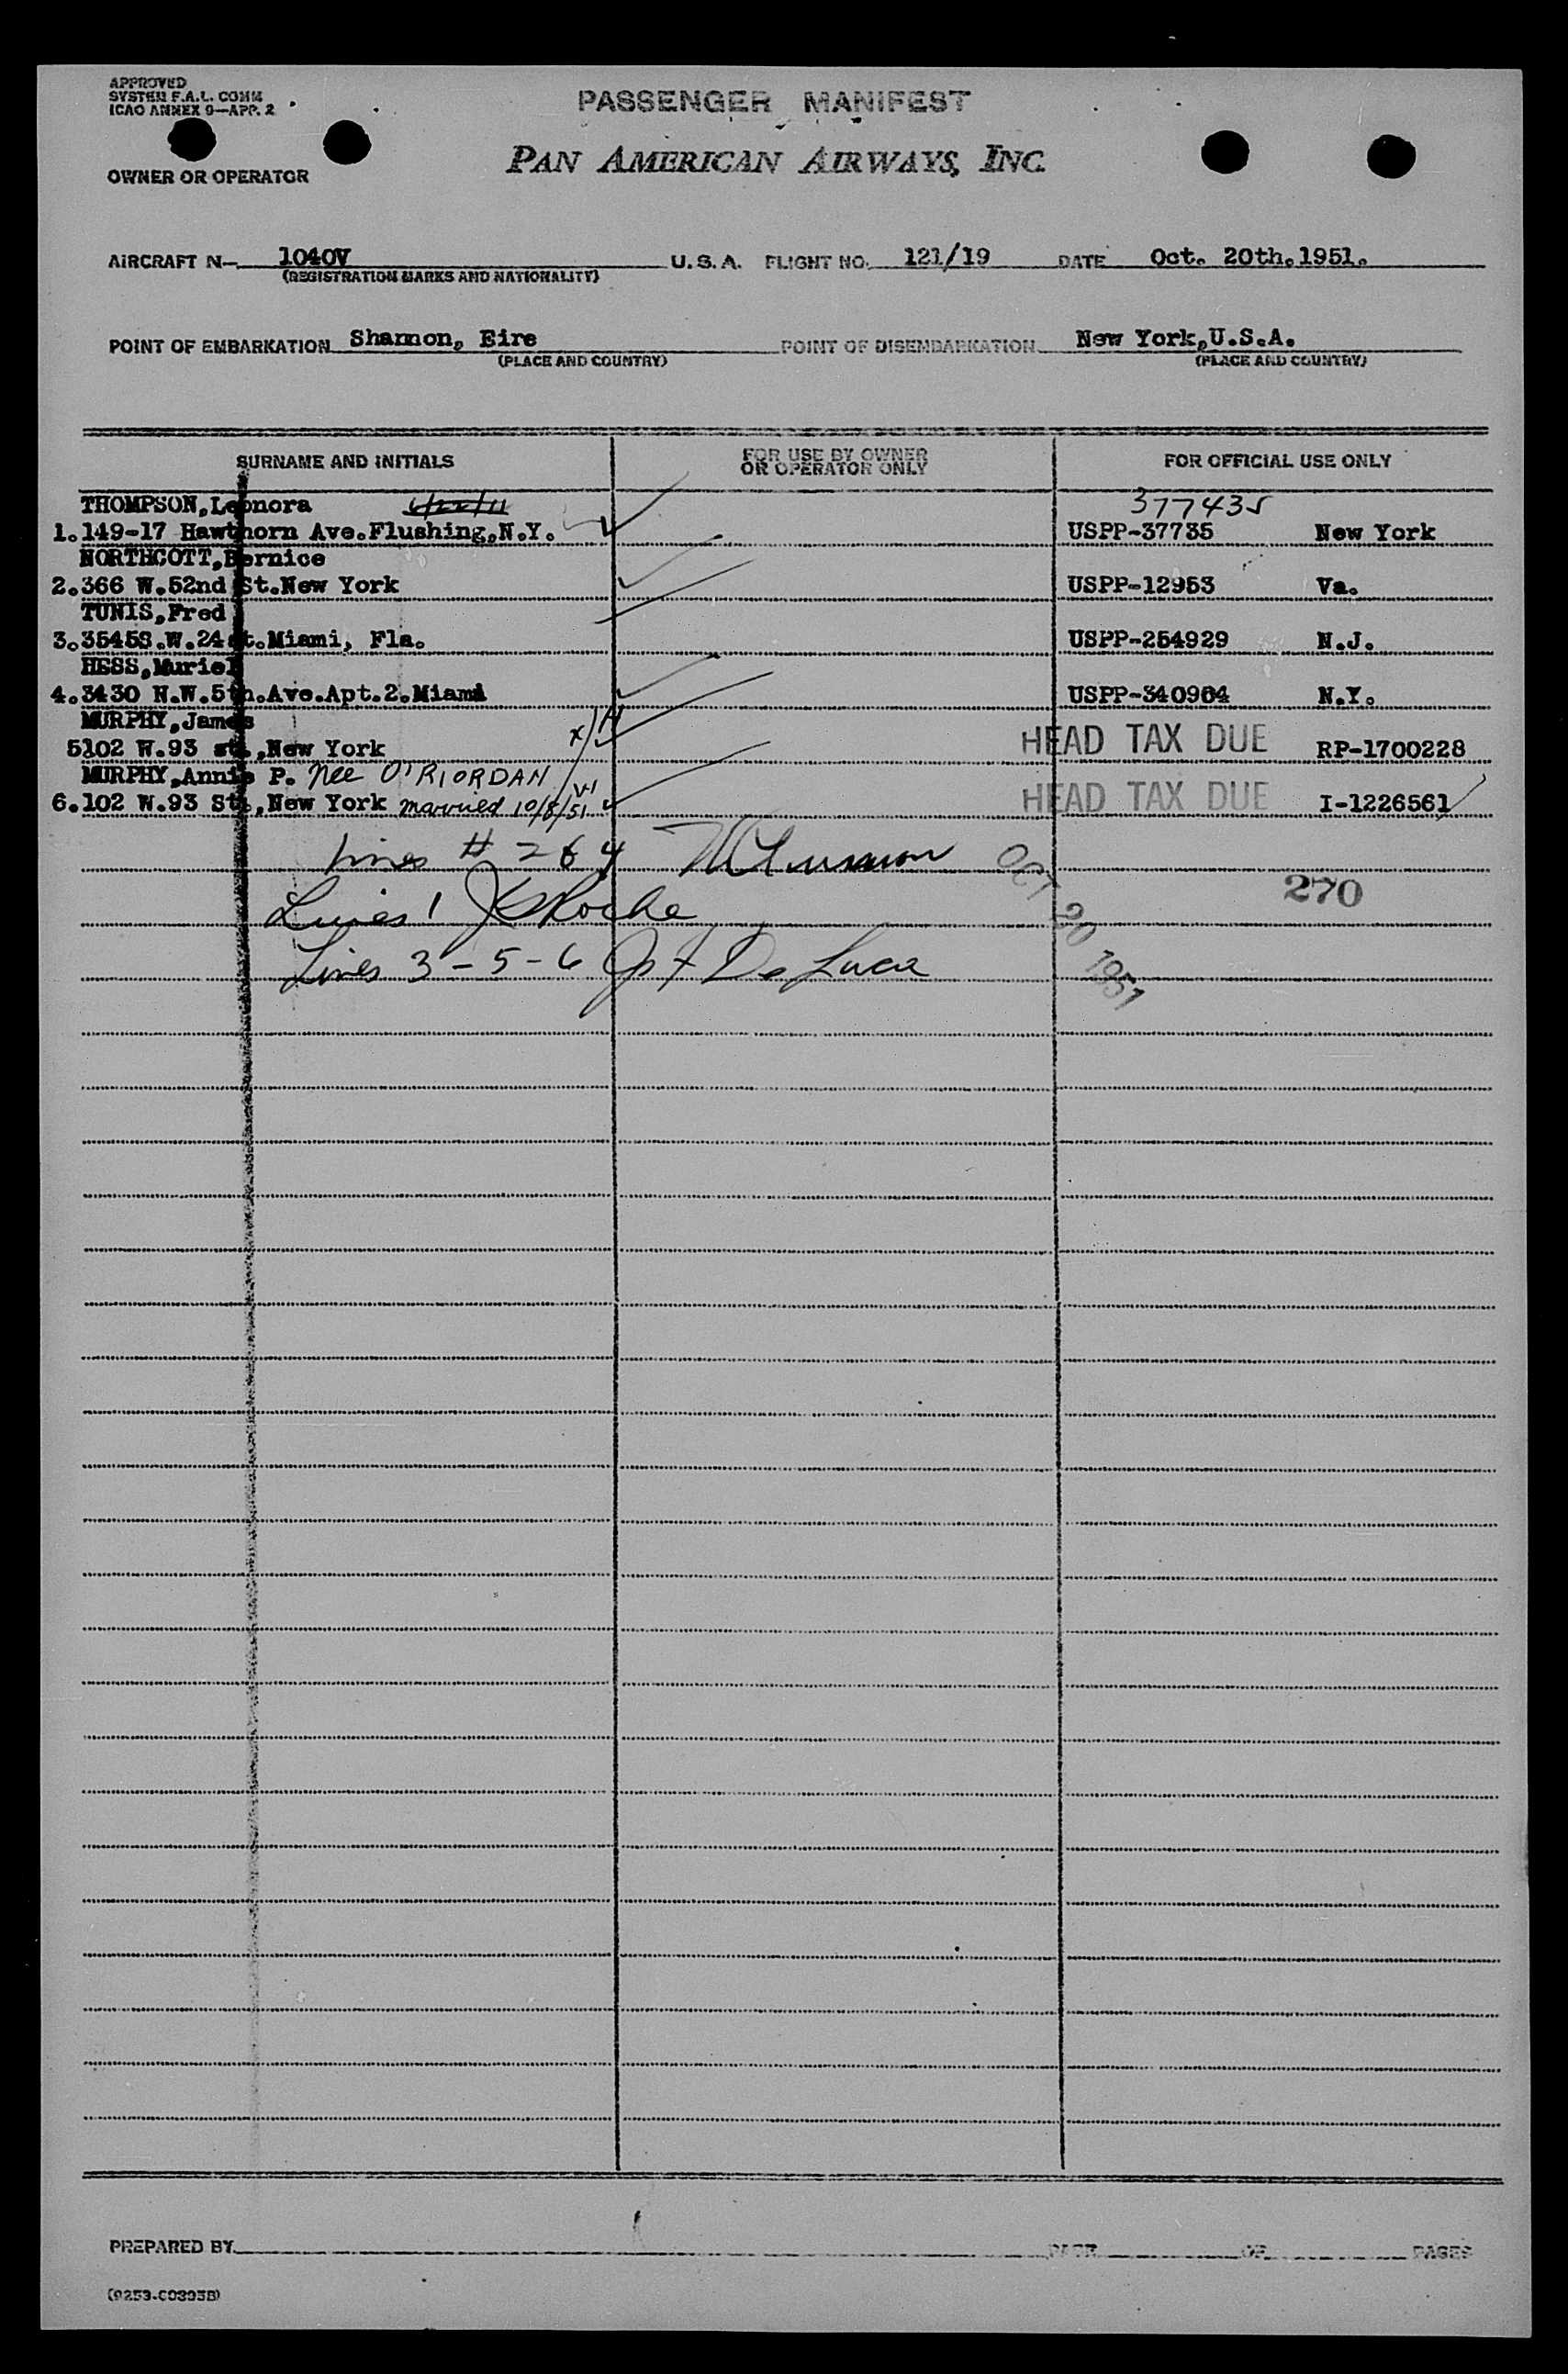 APPROVED
SYSTEM F.A.L. COMM
ICAO ANNEX 9—APP. 2
PASSENGER MANIFEST
OWNER OR OPERATOR
PAN AMERICAN AIRWAYS, INC.
AIRCRAFT N— 1040V U.S.A. FLIGHT NO. 121/19 DATE Oct. 20th.1951.
(REGISTRATION MARKS AND NATIONALITY)
POINT OF EMBARKATION Shannon, Eire POINT OF DISEMBARKATION New York,U.S.A.
(PLACE AND COUNTRY) (PLACE AND COUNTRY)
SURNAME AND INITIALS FOR USE BY OWNER OR OPERATOR ONLY FOR OFFICIAL USE ONLY
THOMPSON,Leonora 377435
1.149-17 Hawthorn Ave.Flushing,N.Y. USPP-37735 New York
NORTHCOTT,Bernice
2.366 W.52nd St.New York USPP-12953 Va.
TUNIS,Fred
3.3545S.W.24st.Miami, Fla. USPP-254929 N.J.
HESS,Muriel
4.3430 N.W.5th.Ave.Apt.2.Miami USPP-340904 N.Y.
MURPHY,James
5102 W.93 st.,New York HEAD TAX DUE RP-1700228
MURPHY,Annie P. nee O'RIORDAN
6.102 W.93 St.,New York married 10/8/51 HEAD TAX DUE I-1226561
Lines # 2 & 4
OCT 20 1951
270
Lines 1 Roche
Lines 3-5-6 De Luca
PREPARED BY PAGE OF PAGES
(9253-C0395B)